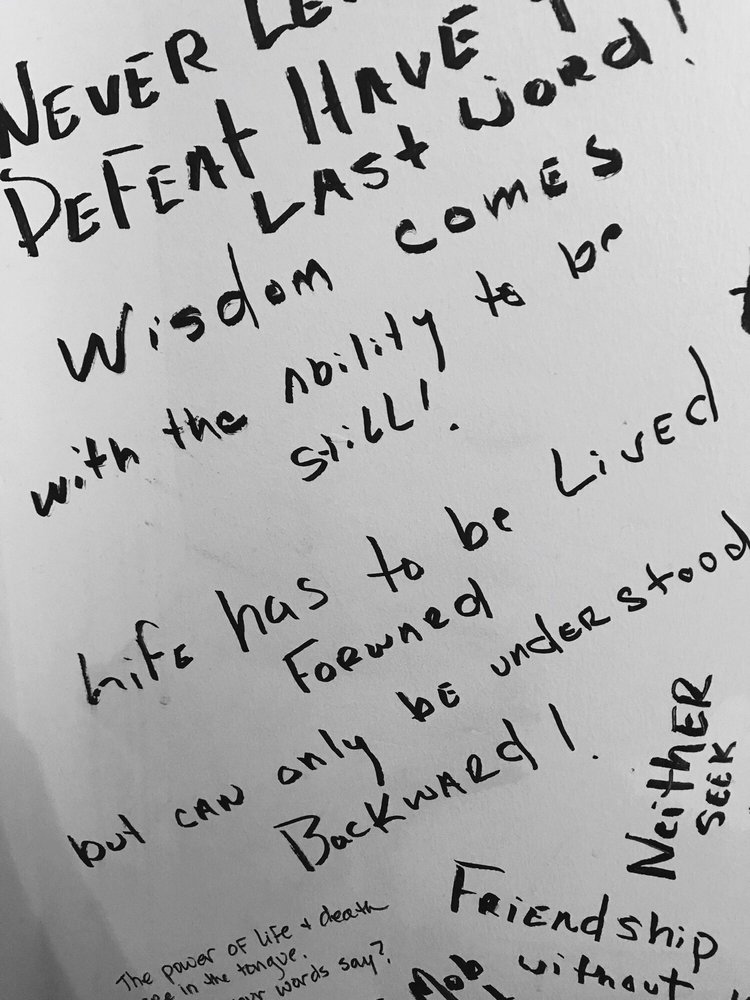 NEVER LE
DEFEAT HAVE
LAST WORD!
Wisdom comes
with the Ability to be
still!
Life has to be Lived
Forward
but can only be understood
Backward!
Neither
SEEK
Friendship
without
Mob
The power of life + death
in the tongue.
words say?